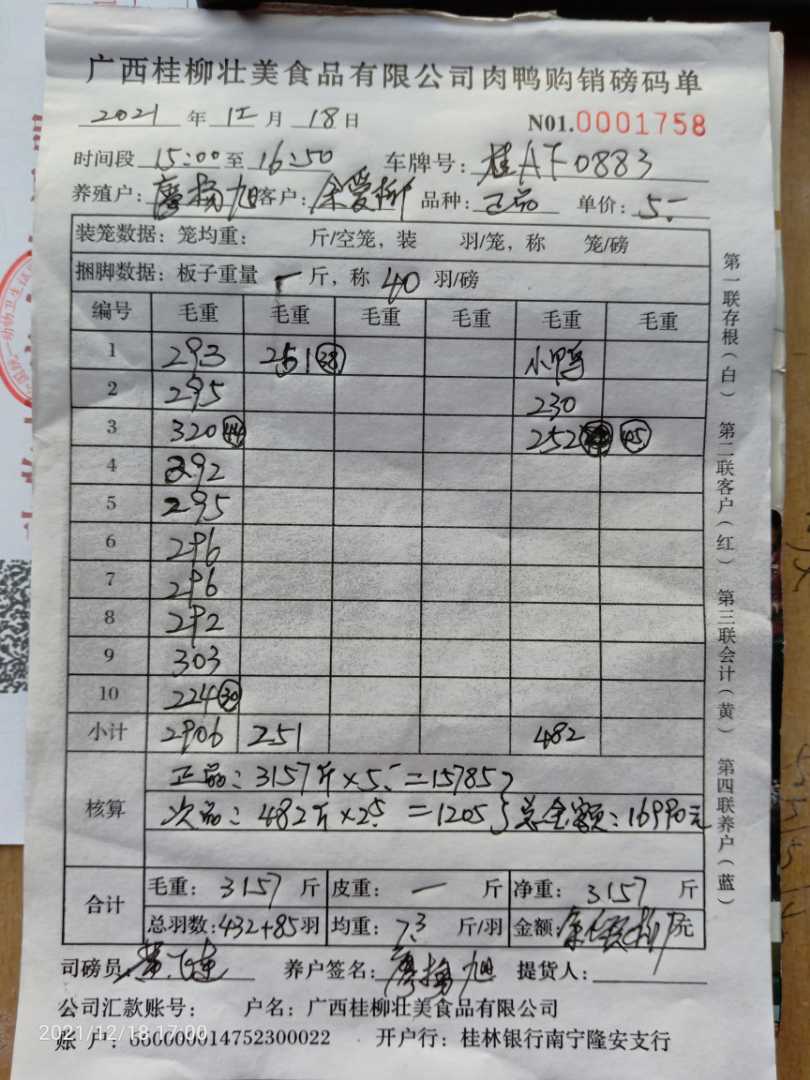 广西桂柳壮美食品有限公司肉鸭购销磅码单
2021 年 12 月 18 日 N01.0001758
时间段 15:00 至 16:50 车牌号: 桂AF0883
养殖户: 廖杨旭 客户: 余爱柳 品种: 正品 单价: 5.-
装笼数据: 笼均重: 斤/空笼, 装 羽/笼, 称 笼/磅
捆脚数据: 板子重量 一 斤, 称 40 羽/磅
编号 毛重 毛重 毛重 毛重 毛重 毛重
1 293 251 38 小鸭
2 295 230
3 320 44 252 45
4 292
5 295
6 296
7 296
8 292
9 303
10 224 30
小计 2906 251 482
核算
正品: 3157斤×5.-=15785
次品: 482斤×2.5=1205 总金额: 16990元
合计
毛重: 3157 斤 皮重: 一 斤 净重: 3157 斤
总羽数: 432+85 羽 均重: 7.3 斤/羽 金额: 余爱柳 元
司磅员: 养户签名: 廖杨旭 提货人:
公司汇款账号: 户名: 广西桂柳壮美食品有限公司
账 户: 000000014752300022 开户行: 桂林银行南宁隆安支行
2021/12/18 17:00
第一联存根(白) 第二联客户(红) 第三联会计(黄) 第四联养户(蓝)